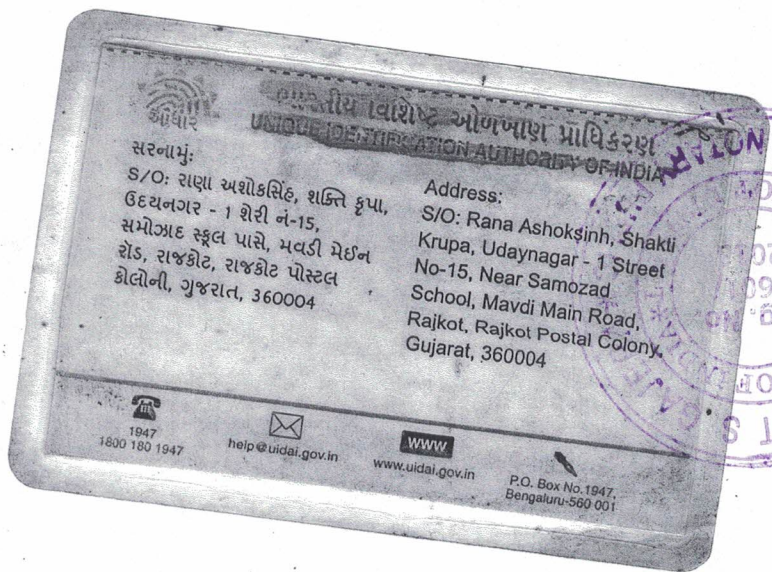 આધાર
ભારતીય વિશિષ્ટ ઓળખાણ પ્રાધિકરણ
UNIQUE IDENTIFICATION AUTHORITY OF INDIA
સરનામું:
S/O: રાણા અશોકસિંહ, શક્તિ કૃપા,
ઉદયનગર - 1 શેરી નં-15,
સમોઝાદ સ્કૂલ પાસે, મવડી મેઈન
રૉડ, રાજકોટ, રાજકોટ પોસ્ટલ
કોલોની, ગુજરાત, 360004
Address:
S/O: Rana Ashoksinh, Shakti
Krupa, Udaynagar - 1 Street
No-15, Near Samozad
School, Mavdi Main Road,
Rajkot, Rajkot Postal Colony,
Gujarat, 360004
1947
1800 180 1947
help@uidai.gov.in
www
www.uidai.gov.in
P.O. Box No.1947,
Bengaluru-560 001
NOTARY